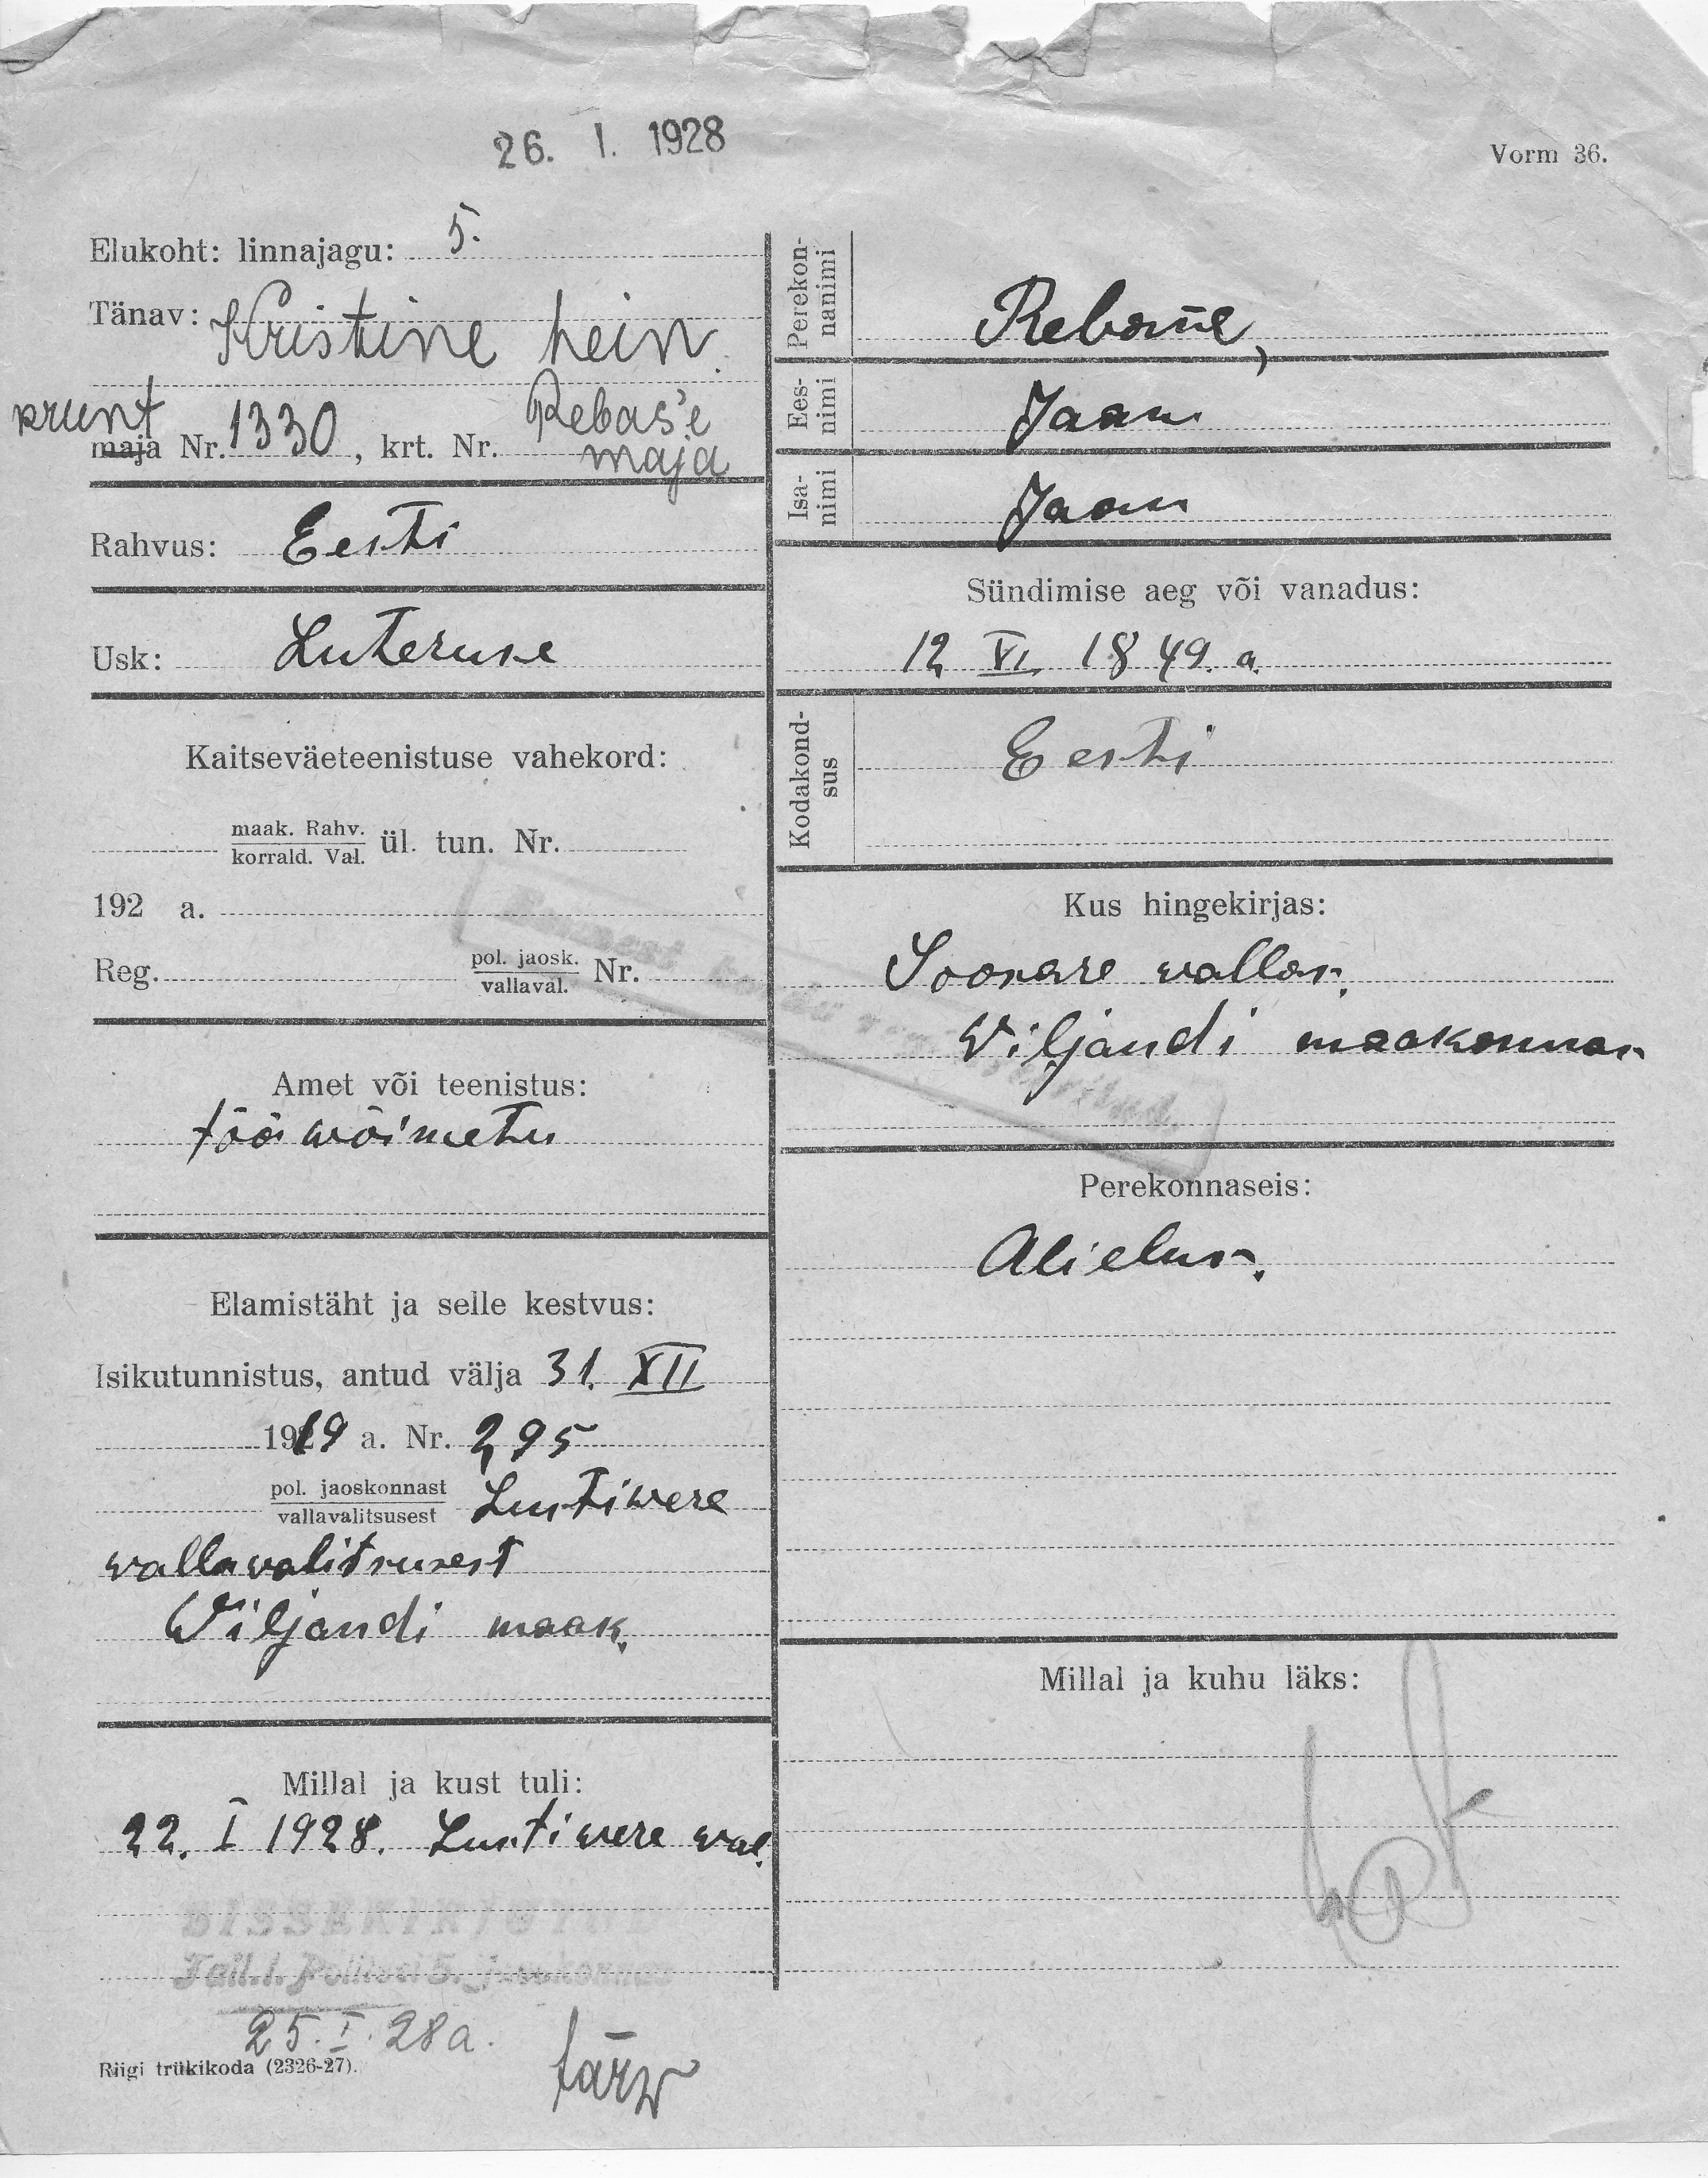 26. I. 1928
Vorm 36.
Elukoht: linnajagu: 5.
Tänav: Kristine hein
krunt
maja Nr. 1330, krt. Nr. Rebas'e
maja
Rahvus: Eesti
Usk: Luteruse
Kaitseväeteenistuse vahekord:
maak. Rahv.
korrald. Val. ül. tun. Nr.
192 a.
Reg. pol. jaosk.
vallaval. Nr.
Amet või teenistus:
töö wõimetu
Elamistäht ja selle kestvus:
Isikutunnistus, antud välja 31. XII
1919 a. Nr. 295
pol. jaoskonnast
vallavalitsusest Lustiwere
wallawalitsusest
Wiljandi maak.
Millal ja kust tuli:
22. I 1928. Lustiwere wal.
SISSEKIRJUTUD
Tall.-l. Politsei 5. jaoskonnas
25. I. 28 a.
Riigi trükikoda (2326-27).
Perekon-
nanimi
Rebane,
Ees-
nimi
Jaan
Isa-
nimi
Jaan
Sündimise aeg või vanadus:
12 VI 1849. a.
Kodakond-
sus
Eesti
Kus hingekirjas:
Soosare wallas.
Wiljandi maakonnas
Perekonnaseis:
Abielus.
Millal ja kuhu läks: